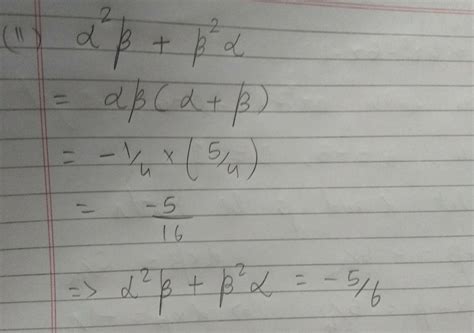 (11) α²β + β²α
= αβ(α+β)
= -1/4 × (5/4)
= -5/16
=> α²β + β²α = -5/6